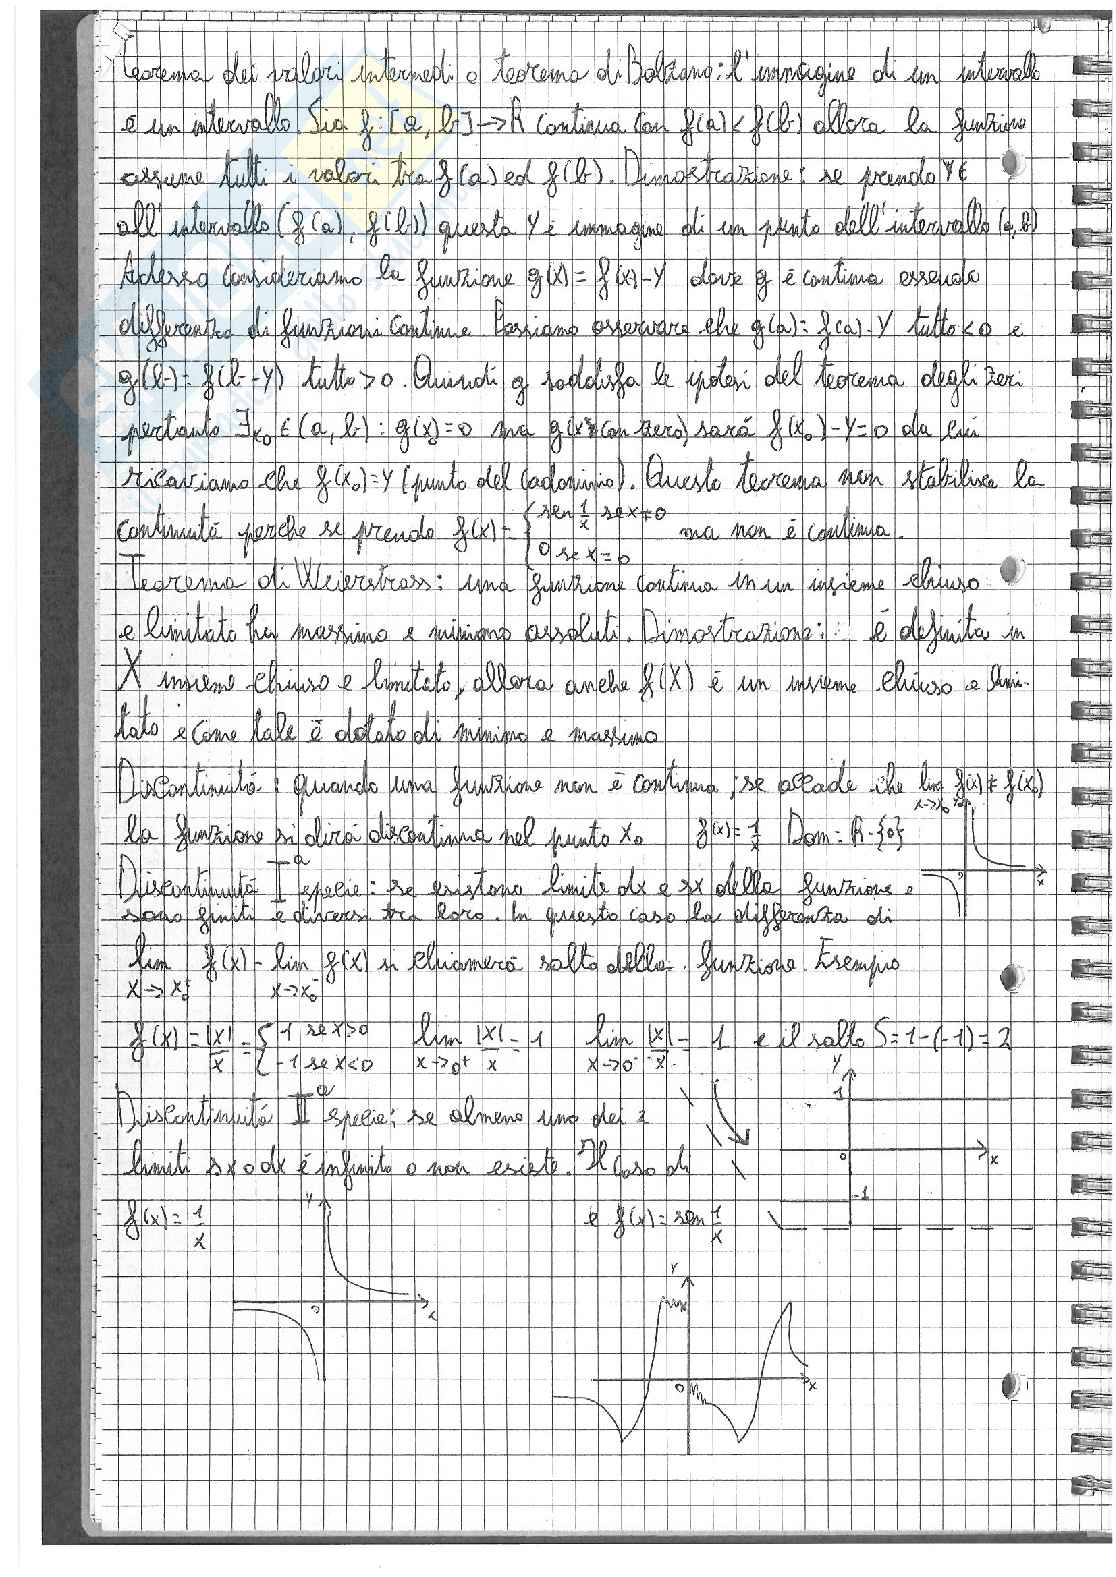 Teorema dei valori intermedi o teorema di Bolzano: l'immagine di un intervallo
è un intervallo. Sia f: [a, b] → R continua con f(a) < f(b) allora la funzione
assume tutti i valori tra f(a) ed f(b). Dimostrazione: se prendo Y ∈
all'intervallo (f(a), f(b)) questa Y è immagine di un punto dell'intervallo (a, b)
Adesso consideriamo la funzione g(x) = f(x) - Y dove g è continua essendo
differenza di funzioni continue. Possiamo osservare che g(a) = f(a) - Y tutto < 0 e
g(b) = f(b - Y) tutto > 0. Quindi g soddisfa le ipotesi del teorema degli zeri
pertanto ∃ x₀ ∈ (a, b) : g(x₀) = 0 ma g(x) (con zero) sarà f(x₀) - Y = 0 da cui
ricaviamo che f(x₀) = Y (punto del codominio). Questo teorema non stabilisce la
continuità perche se prendo f(x) = { sen 1/x se x ≠ 0
0 se x = 0 ma non è continua.
Teorema di Weierstrass: una funzione continua in un insieme chiuso
e limitato ha massimo e minimo assoluti. Dimostrazione: è definita in
X insieme chiuso e limitato, allora anche f(X) è un insieme chiuso e limi-
tato e come tale è dotato di minimo e massimo
Discontinuità: quando una funzione non è continua; se accade che lim x→x₀ f(x) ≠ f(x₀)
la funzione si dirà discontinua nel punto x₀ f(x) = 1/x Dom = R - {0}
Discontinuità Iª specie: se esistono limite dx e sx della funzione e
sono finiti e diversi tra loro. In questo caso la differenza di
lim x→x₀⁺ f(x) - lim x→x₀⁻ f(x) si chiamerà salto della funzione. Esempio
f(x) = |x|/x = { 1 se x>0 -1 se x<0 lim x→0⁺ |x|/x = 1 lim x→0⁻ |x|/x = 1 e il salto S = 1 - (-1) = 2
Discontinuità IIª specie: se almeno uno dei 2
limiti sx o dx è infinito o non esiste. Il caso di
f(x) = 1/x e f(x) = sen 1/x
0 x
Y 1 0 x -1
Y 0 x
Y 0 x